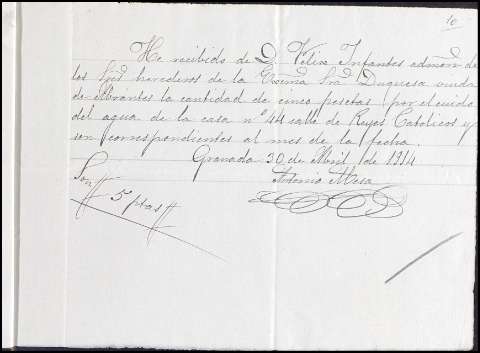 10
He recibido de D. Felix Infantes admor. de
los Sres. herederos de la Excma. Sra. Duquesa viuda
de Abrantes la cantidad de cinco pesetas por el cuido
del agua de la casa nº 44 calle de Reyes Catolicos y
son correspondientes al mes de la fecha.
Granada 30 de Abril de 1914
Antonio Mesa
Son # 5 ptas #